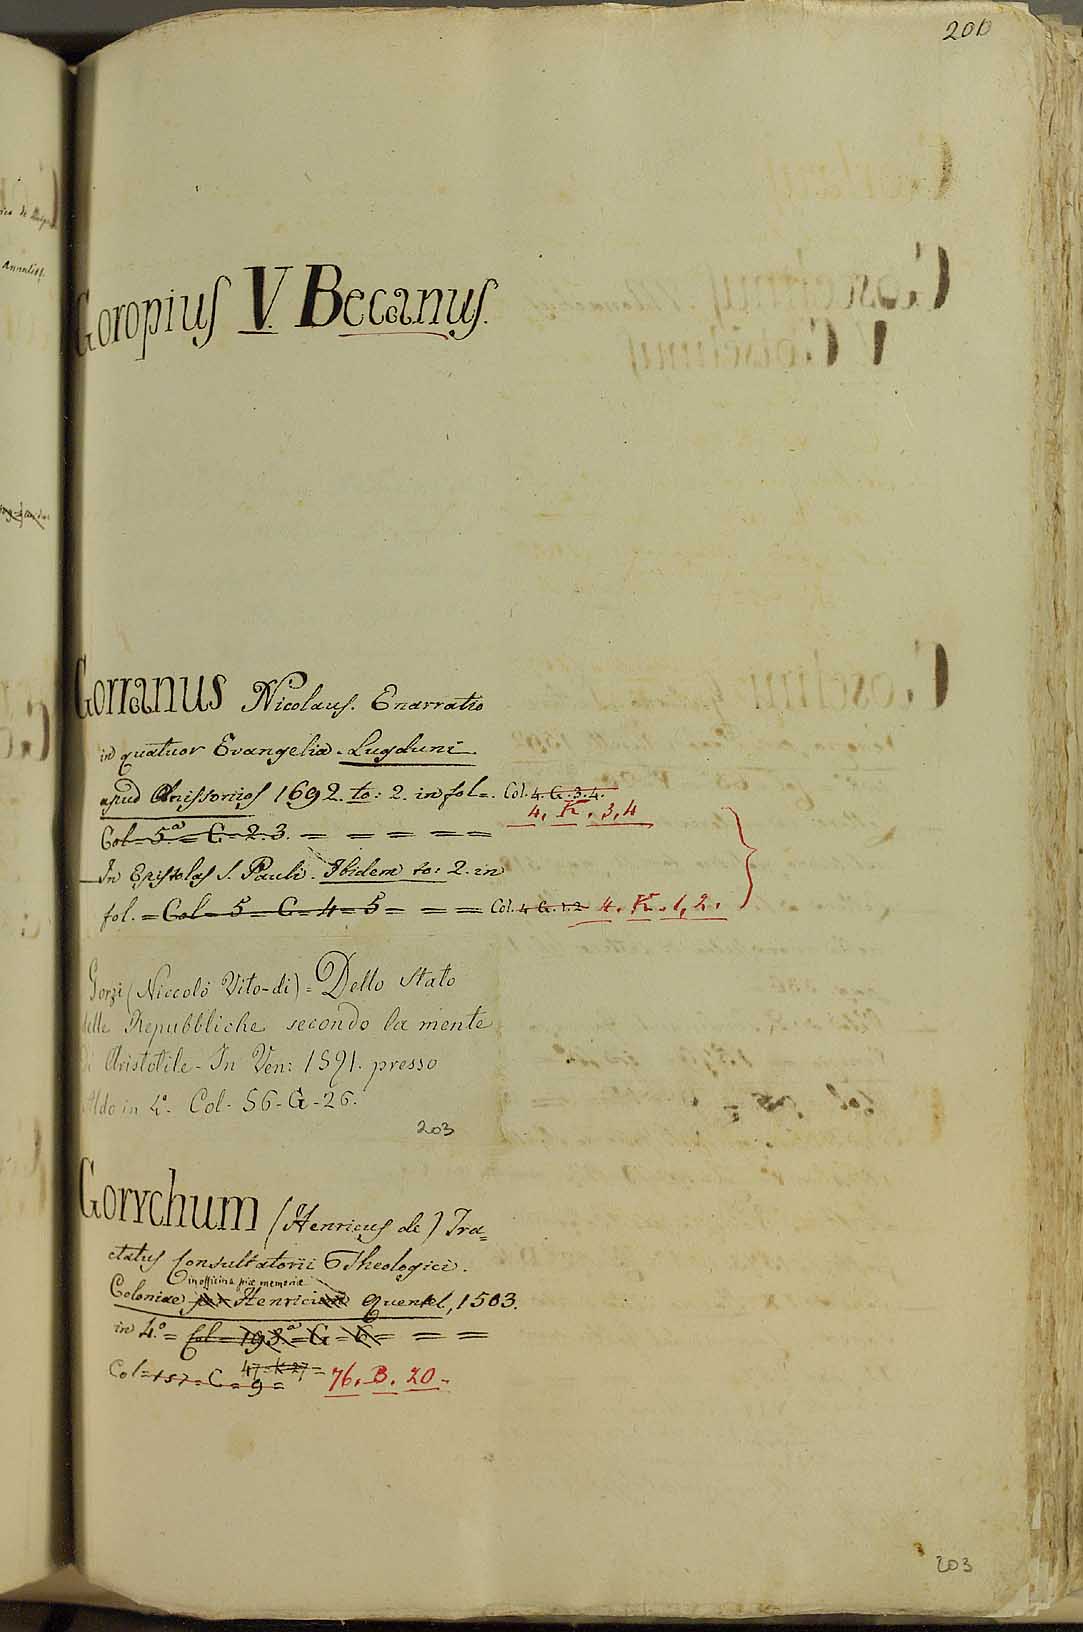 200
Goropius V. Becanus.
Gorranus Nicolaus. Enarratio
in quatuor Evangelia. Lugduni
apud Anissonios 1692. to: 2. in fol=. Col. 4. G. 3. 4.
4. K. 3, 4
Col= 5ª= C= 2. 3. = = = = =
In Epistolas S. Pauli. Ibidem to: 2. in
fol. = Col= 5= C= 4= 5= = = = Col. 4. G. 1. 2 4. K. 1, 2.
Gorzi (Niccolò Vito-di) = Dello Stato
delle Repubbliche secondo la mente
di Aristotile - In Ven: 1591. presso
Aldo in 4º. Col- 56- G- 26.
203
Gorychum (Henricus de) Tra=
ctatus Consultatorii Theologici.
in officina piæ memoriæ
Coloniæ, per Henricum Quentel, 1503.
in 4.º = Col= 193ª= G= 6= = = =
47= K 27 =
Col= 157= C= 9= 76. B. 20.
203